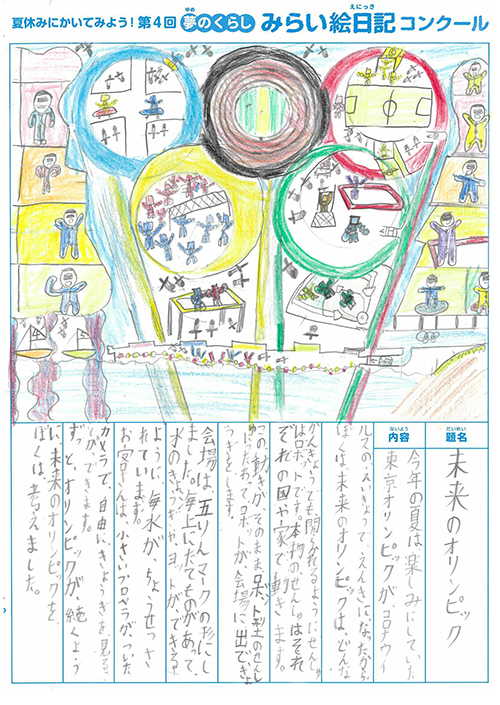 夏休みにかいてみよう！第4回 夢のくらし みらい絵日記コンクール
ゆめ
えにっき
だいめい
題名
未来のオリンピック
ないよう
内容
今年の夏は楽しみにしていた
東京オリンピックが、コロナウイ
ルスのえいきょうでえんきになったから、
ぼくは、未来のオリンピックは、どんな
かんきょうでも開かれるように、せんしゅ
はロボットです。本物のせんしゅはそれ
ぞれの国や家で動きます。
この動きが、そのままロボット型のせんし
ゅにつたわってロボットが会場に出てきょ
うぎをします。
会場は、五りんマークの形にし
ました。海上にたてものがあって、
水のきょうぎや、ヨットができる
ように、海水がちょうせつさ
れています。
お客さんは、小さいプロペラが、ついた
カメラで、自由にきょうぎを見るこ
とができます。
ずっと、オリンピックが、続くよう
に、未来のオリンピックを、
ぼくは考えました。